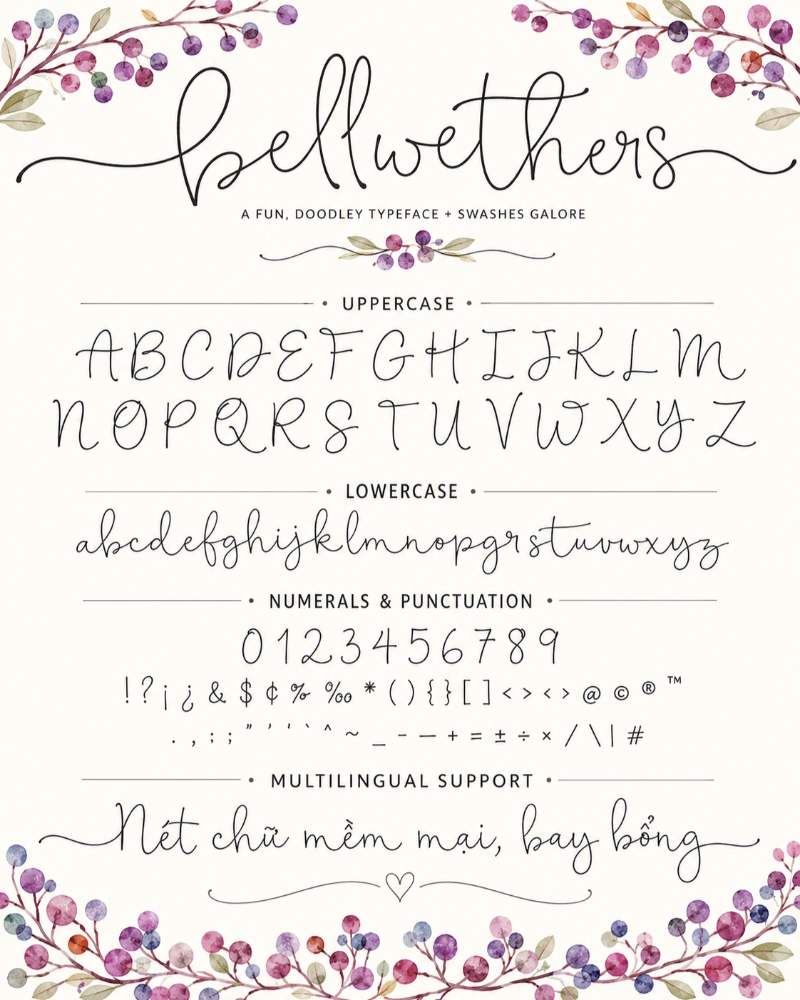 bellwethers
A FUN, DOODLEY TYPEFACE + SWASHES GALORE
UPPERCASE
ABCDEFGHIJKLM
NOPQRSTUVWXYZ
LOWERCASE
abcdefghijklmnopqrstuvwxyz
NUMERALS & PUNCTUATION
0123456789
! ? ¡ ¿ & $ ¢ % ‰ * ( ) { } [ ] < > < > @ © ® ™
. , : ; " ' ' ` ^ ~ _ - — + = ± ÷ × / \ | #
MULTILINGUAL SUPPORT
Nét chữ mềm mại, bay bổng